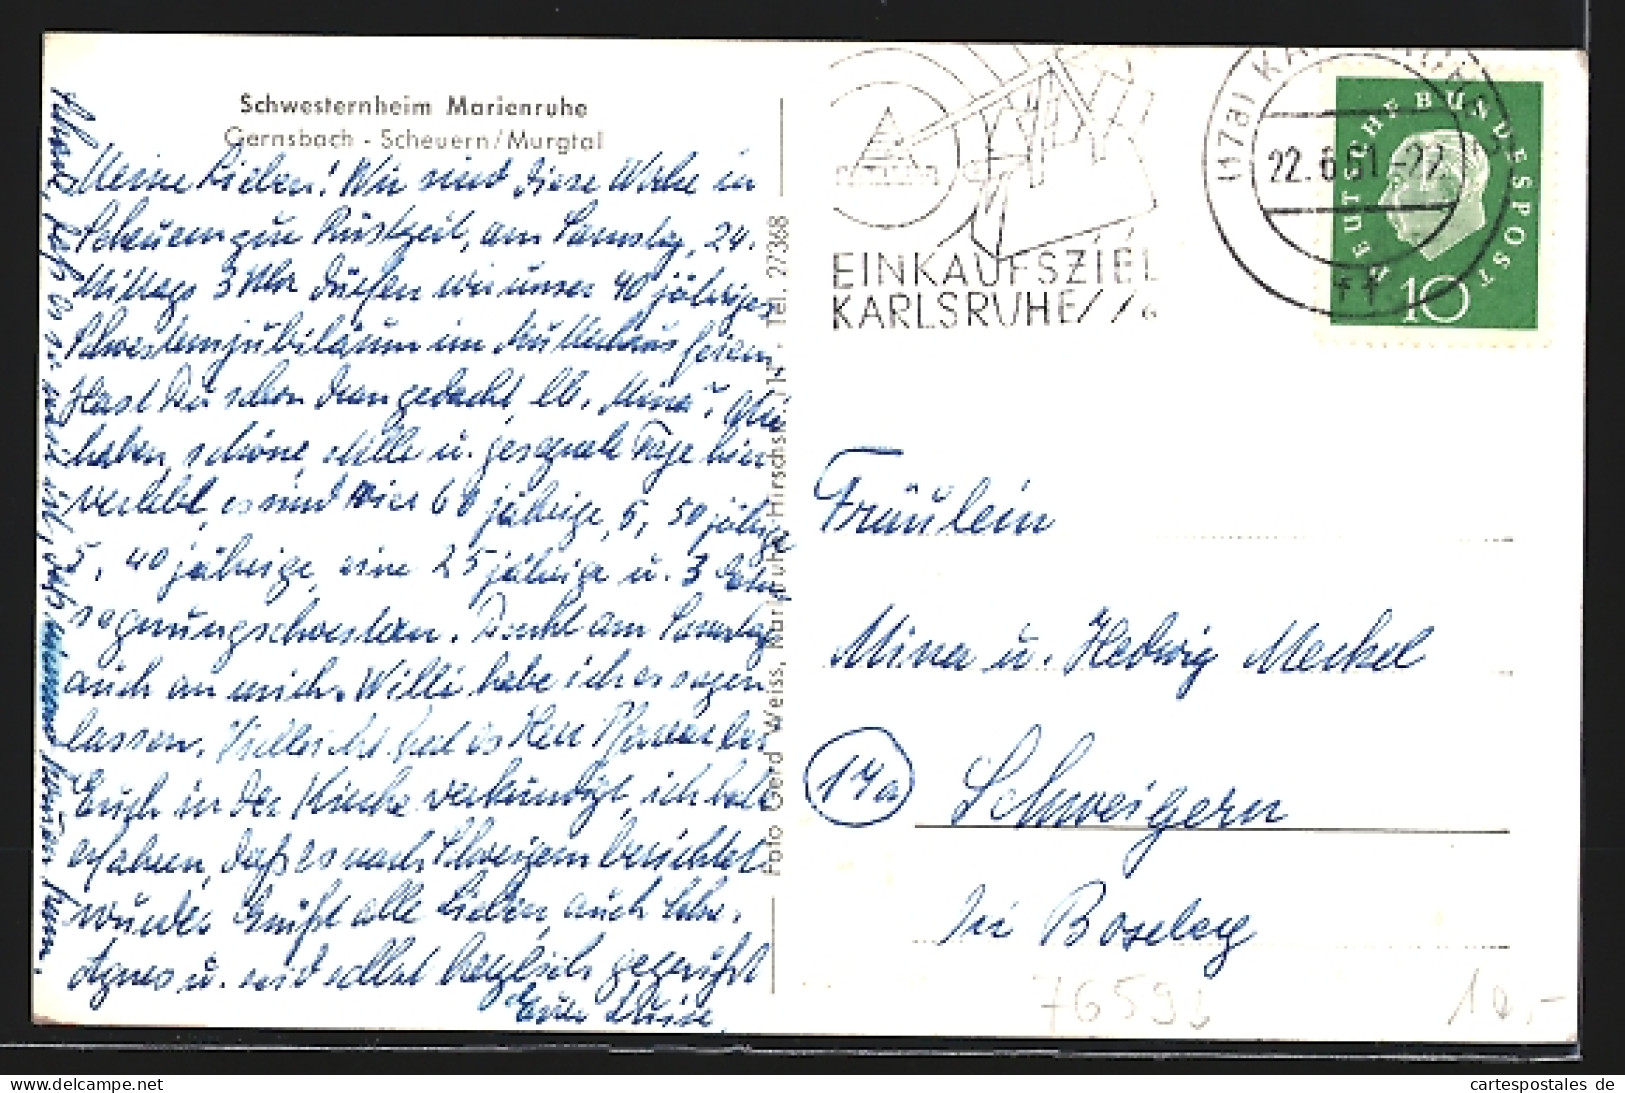 Schwesternheim Marienruhe
Gernsbach - Scheuern/Murgtal
Meine Lieben! Wir sind diese Woche in
Scheuern zur Rüstzeit, am Samstag, 24.
Mittags 3 Uhr dürfen wir unser 40 jähriges
Schwesternjubiläum im Mutterhaus feiern
Hast Du schon dran gedacht, lb. Mina? Wir
haben schöne, stille u. gesegnete Tage hier
verlebt, es sind vier 60 jährige, 5, 50 jährige
5, 40 jährige, eine 25 jährige u. 3 Ein
segnungschwestern. Denkt am Samstag
auch an mich. Willi habe ich es sagen
lassen. Vielleicht hat es Herr Pfarrer bei
Euch in der Kirche verkündigt, ich habe
erfahren, daß es nach Schweigern berichtet
würde. Grüßt alle Lieben, auch
Agnes u. seid selbst herzlich gegrüßt
Eure Luise
Foto Gerd Weiss, Karlsruhe, Hirschstr. 114 - Tel. 27368
EINKAUFSZIEL
KARLSRUHE
(17a) KARLSRUHE
22.6.61.-22
DEUTSCHE BUNDESPOST
10
Fräulein
Mina u. Hedwig Merkel
14a
Schweigern
bei Boxberg
76593
10,-
cartespostales de